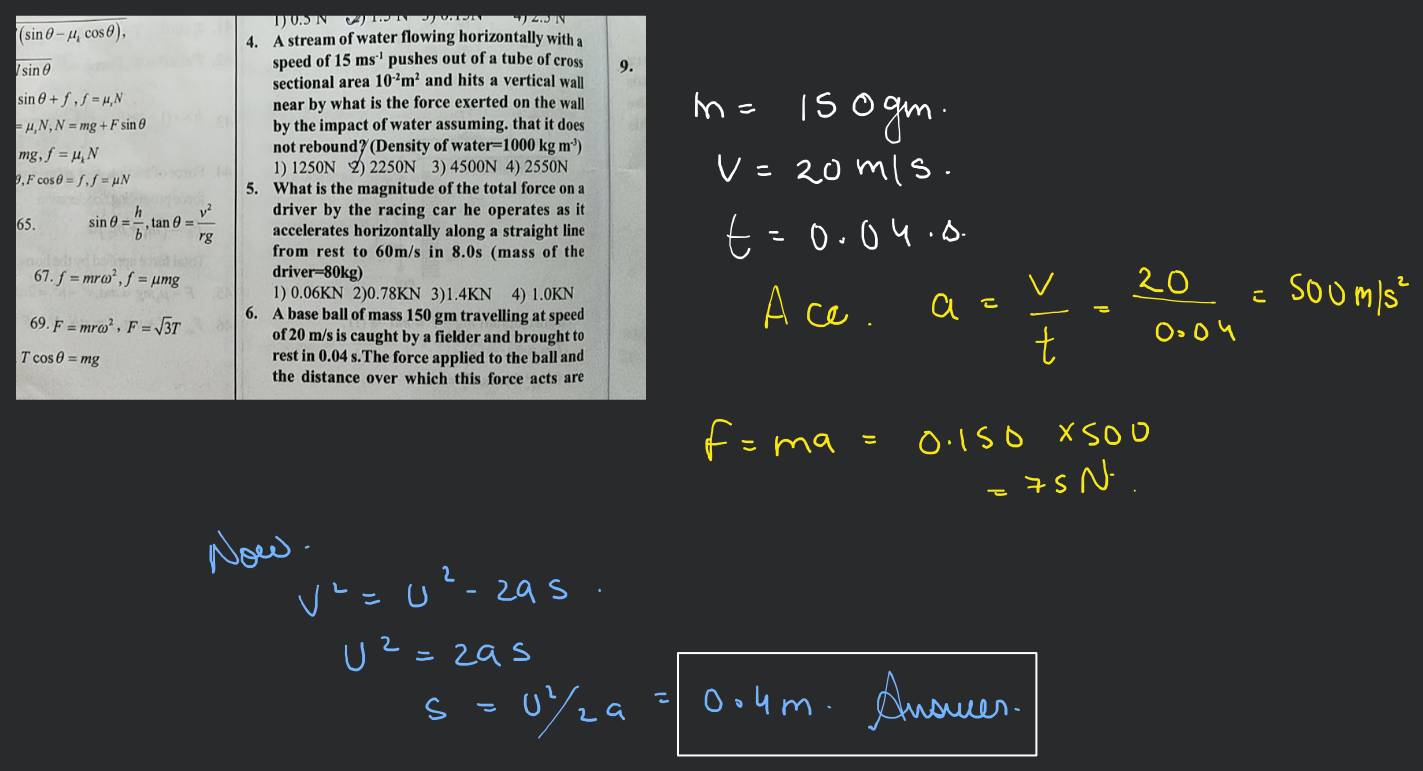 (sin θ − μₖ cos θ),
sin θ
sin θ + f , f = μₛN
= μₛN, N = mg + F sin θ
mg, f = μₖN
θ, F cos θ = f, f = μN
65. sin θ = h/b, tan θ = v²/rg
67. f = mrω², f = μmg
69. F = mrω², F = √3T
T cos θ = mg
1) 0.5 N 2) 1.5 N 3) 0.15N 4) 2.5 N
4. A stream of water flowing horizontally with a
speed of 15 ms⁻¹ pushes out of a tube of cross
sectional area 10⁻²m² and hits a vertical wall
near by what is the force exerted on the wall
by the impact of water assuming. that it does
not rebound? (Density of water=1000 kg m⁻³)
1) 1250N 2) 2250N 3) 4500N 4) 2550N
5. What is the magnitude of the total force on a
driver by the racing car he operates as it
accelerates horizontally along a straight line
from rest to 60m/s in 8.0s (mass of the
driver=80kg)
1) 0.06KN 2)0.78KN 3)1.4KN 4) 1.0KN
6. A base ball of mass 150 gm travelling at speed
of 20 m/s is caught by a fielder and brought to
rest in 0.04 s.The force applied to the ball and
the distance over which this force acts are
9.
m = 150gm.
V = 20 m/s.
t = 0.04.s.
Acc. a = v/t = 20/0.04 = 500 m/s²
F = ma = 0.150 × 500
= 75 N.
Now.
V² = U² - 2as.
U² = 2as
s = U²/2a = 0.4m. Answer.